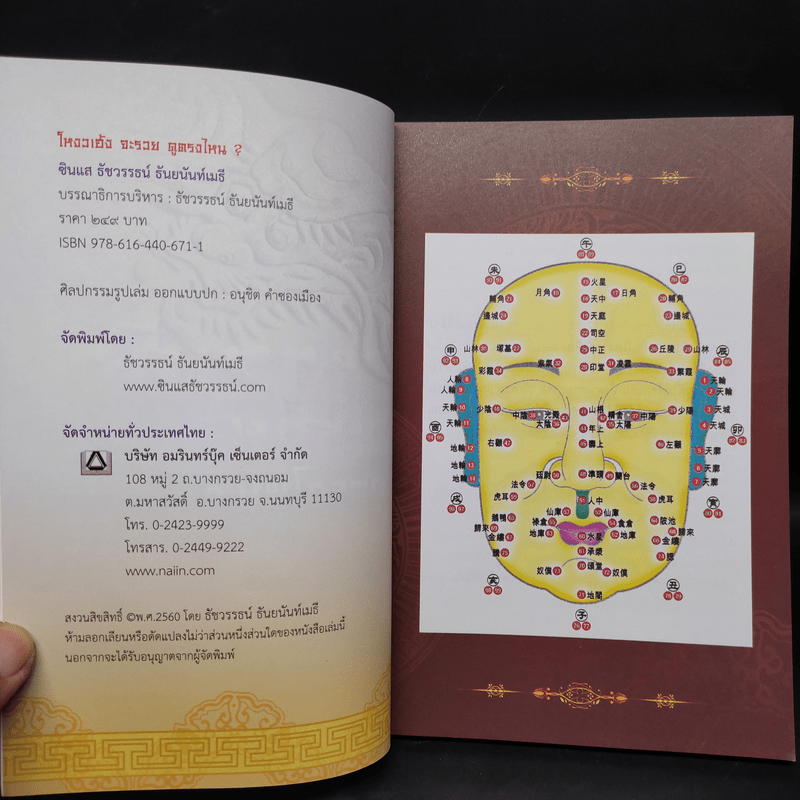 โหงวเฮ้ง จะรวย ดูตรงไหน ?
ซินแส ธัชวรรธน์ ธันยนันท์เมธี
บรรณาธิการบริหาร : ธัชวรรธน์ ธันยนันท์เมธี
ราคา ๒๔๙ บาท
ISBN 978-616-440-671-1
ศิลปกรรมรูปเล่ม ออกแบบปก : อนุชิต คำซองเมือง
จัดพิมพ์โดย :
ธัชวรรธน์ ธันยนันท์เมธี
www.ซินแสธัชวรรธน์.com
จัดจำหน่ายทั่วประเทศไทย :
บริษัท อมรินทร์บุ๊ค เซ็นเตอร์ จำกัด
108 หมู่ 2 ถ.บางกรวย-จงถนอม
ต.มหาสวัสดิ์ อ.บางกรวย จ.นนทบุรี 11130
โทร. 0-2423-9999
โทรสาร. 0-2449-9222
www.naiin.com
สงวนสิขสิทธิ์ ©พ.ศ.2560 โดย ธัชวรรธน์ ธันยนันท์เมธี
ห้ามลอกเลียนหรือดัดแปลงไม่ว่าส่วนหนึ่งส่วนใดของหนังสือเล่มนี้
นอกจากจะได้รับอนุญาตจากผู้จัดพิมพ์
午
未 火星 巳
輔角 月角 天中 日角 輔角
邊城 天庭 邊城
司空
申 山林 塚墓 中正 丘陵 山林 辰
彩霞 紫氣 印堂 凌雲 紫霞
人輪 天輪
人輪 天輪
天輪 少陰 中陰 光殿 山根 精舍 中陽 少陽 天城
酉 天輪 太陰 年上 太陽 天城 卯
地輪 右觀 壽上 左觀 天廓
地輪 廷尉 準頭 蘭台 天廓
地輪 法令 法令 天廓
戌 虎耳 人中 虎耳 寅
鵝鴨 仙庫 仙庫 陂池
歸來 祿倉 食倉 歸來
金縷 地庫 水星 地庫 金縷
腮 承漿 腮
奴僕 頌堂 奴僕
亥 地閣 丑
子